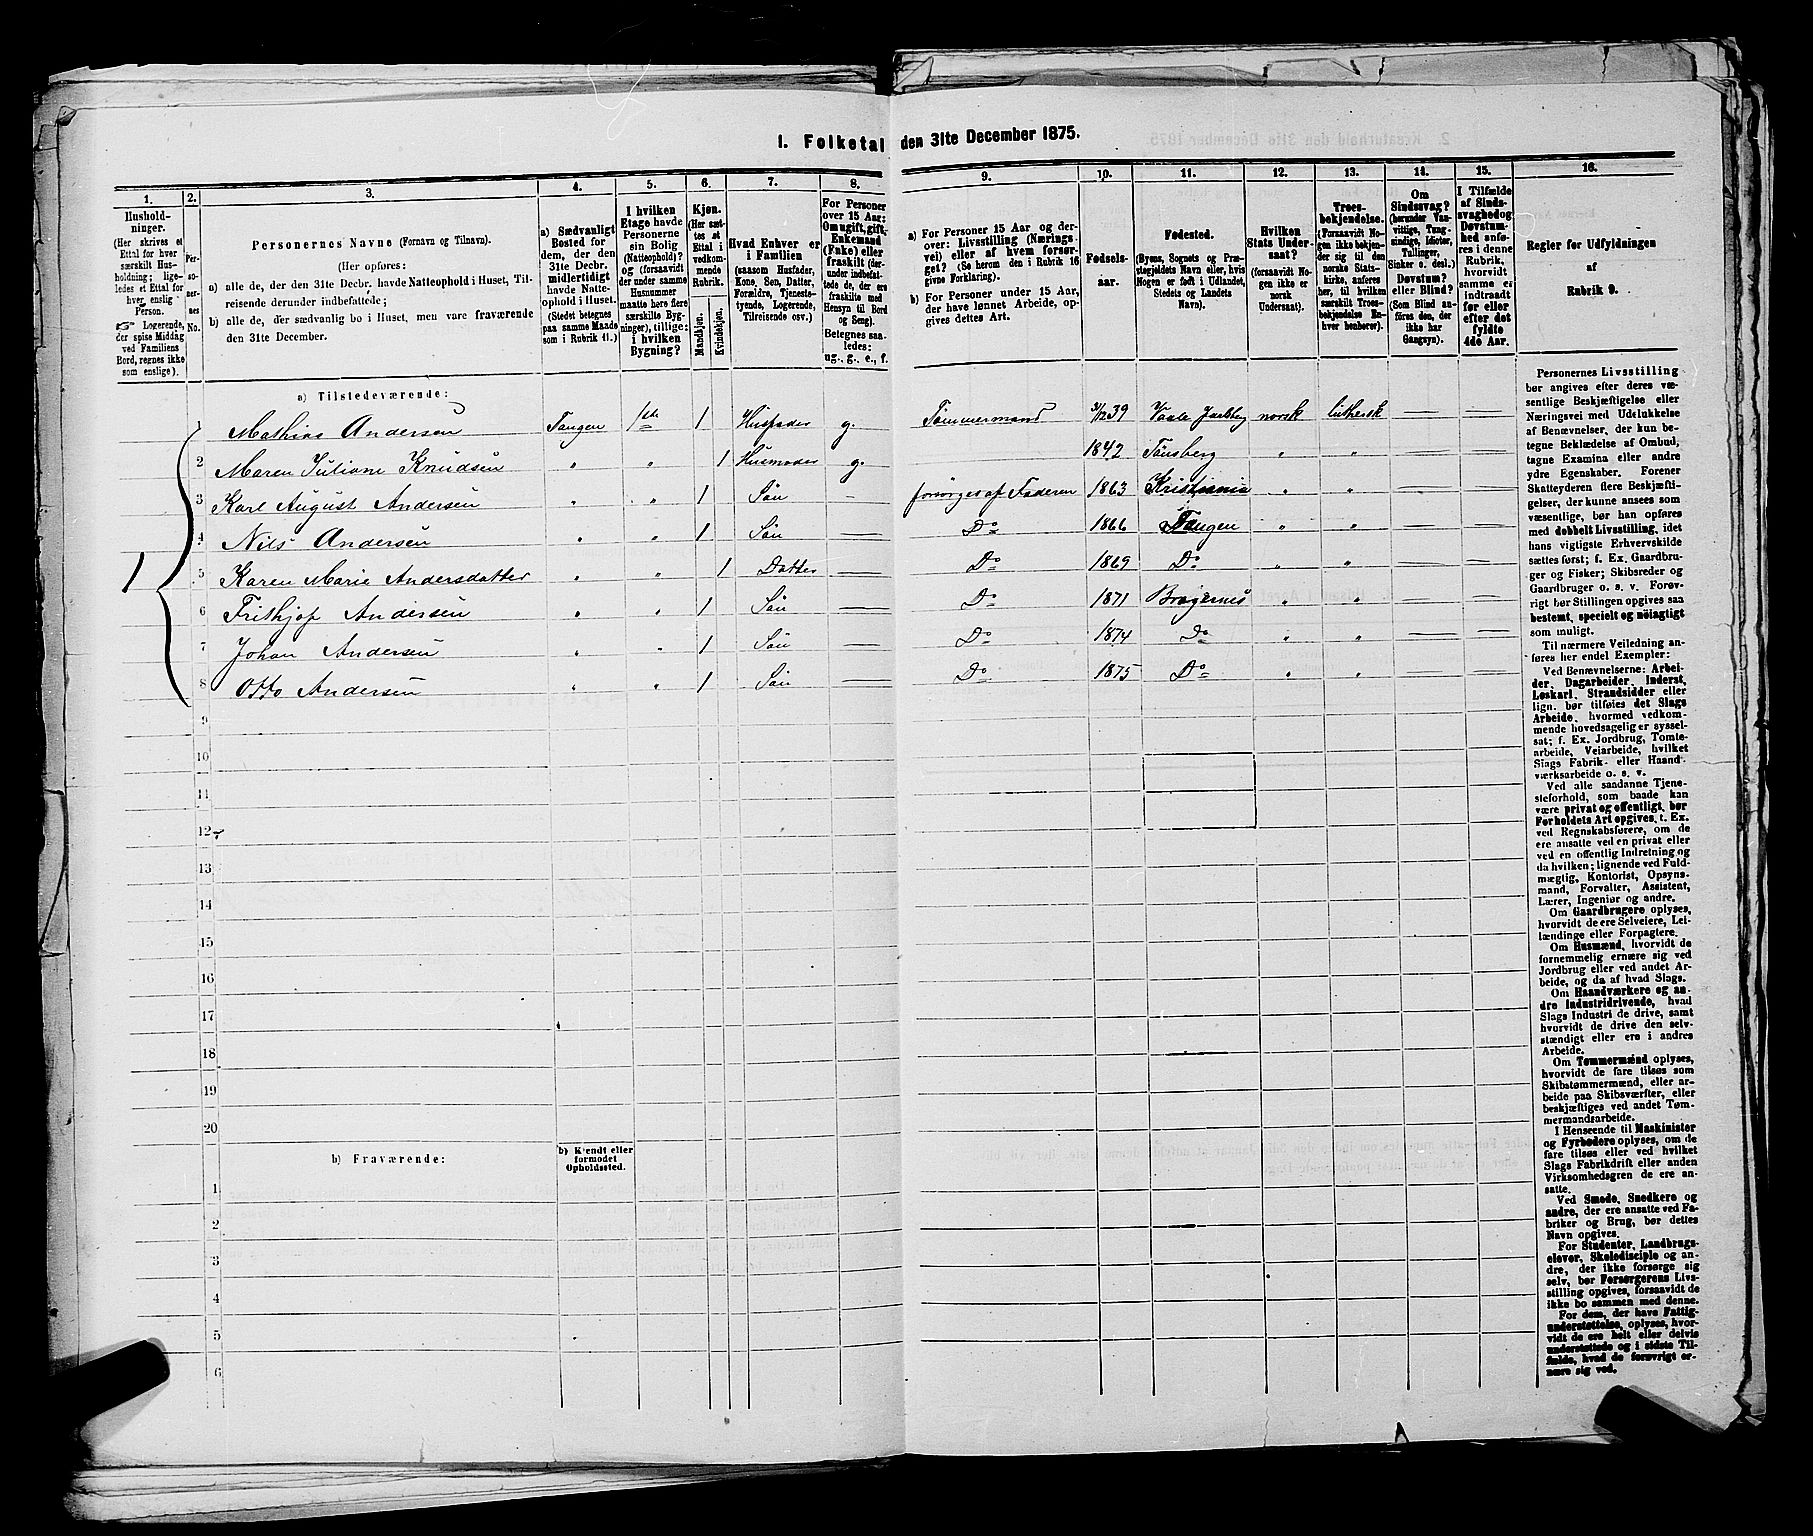 I. Folketal den 31te December 1875.
1. 2. 3. 4. 5. 6. 7. 8. 9. 10. 11. 12. 13. 14. 15. 16.
Husholdninger.
(Her skrives et
Ettal for hver
særskilt Husholdning;
ligeledes et Ettal for
hver enslig
Person.
Logerende,
der spise Middag
ved Familiens
Bord, regnes ikke
som enslige).
Personernes No.
Personernes Navne (Fornavn og Tilnavn).
(Her opføres:
a) alle de, der den 31te Decbr. havde Natteophold i Huset, Tilreisende derunder indbefattede;
b) alle de, der sædvanlig bo i Huset, men vare fraværende
den 31te December.
a) Sædvanligt
Bosted for
dem, der den
31te Decbr.
midlertidigt
havde Natteophold i Huset.
(Stedet betegnes
paa samme Maade
som i Rubrik 11.)
I hvilken
Etage havde
Personerne
sin Bolig
(Natteophold)?
og (forsaavidt
der under samme
Husnummer
maatte høre flere
særskilte Bygninger), tillige:
i hvilken
Bygning?
Kjøn.
(Her sættes et
Ettal i
vedkommende
Rubrik.
Mandkjøn.
Kvindekjøn.
Hvad Enhver er
i Familien
(saasom Husfader,
Kone, Søn, Datter,
Forældre, Tjenestetyende, Logerende,
Tilreisende osv.)
For Personer
over 15 Aar:
Om ugift, gift,
Enkemand
(Enke) eller
fraskilt (derunder indbefattede de, der
ere fraskilte med
Hensyn til Bord
og Seng).
Betegnes saaledes:
ug., g., e., f.
a) For Personer 15 Aar og derover: Livsstilling (Næringsvei) eller af hvem forsørget? (Se herom den i Rubrik 16
givne Forklaring).
b) For Personer under 15 Aar,
der have lønnet Arbeide, opgives dettes Art.
Fødselsaar.
Fødested.
(Byens, Sognets og Præstegjeldets Navn eller, hvis
Nogen er født i Udlandet,
Stedets og Landets
Navn).
Hvilken
Stats Undersaat?
(forsaavidt Nogen ikke er
norsk
Undersaat).
Troesbekjendelse.
(Forsaavidt Nogen ikke bekjender sig til den
norske Statskirke, anføres
her, til hvilken
særskilt Troesbekjendelse Enhver henhører).
Om
Sindssvag?
(herunder Vanvittige, Tungsindige, Idioter,
Tullinger,
Sinker o. desl.)
Døvstum?
eller Blind?
(Som Blind anføres den, der
ikke har
Gangsyn).
I Tilfælde
af Sindssvaghed og
Døvstumhed anføres i denne
Rubrik,
hvorvidt
samme er
indtraadt
før eller
efter det
fyldte
4de Aar.
Regler for Udfyldningen
af
Rubrik 9.
a) Tilstedeværende:
1 1 Mathias Andersen Tangen 1ste 1 Husfader g. Tømmermand 31/12 39 Vaale Jarlsberg norsk luthersk — —
2 Maren Juliane Knudsen " " 1 Husmoder g. 1842 Tønsberg " " — —
3 Karl August Andersen " " 1 Søn — forsørges af Faderen 1863 Kristiania " " — —
4 Nils Andersen " " 1 Søn — Do 1866 Tangen " " — —
5 Karen Marie Andersdatter " " 1 Datter — Do 1869 Do " " — —
6 Frithjof Andersen " " 1 Søn — Do 1871 Bragernes " " — —
7 Johan Andersen " " 1 Søn — Do 1874 Do " " — —
8 Otto Andersen " " 1 Søn — Do 1875 Do " " — —
9
10
11
12
13
14
15
16
17
18
19
20
b) Fraværende:
b) Kjendt eller
formodet
Opholdssted.
1
2
3
4
5
6
Personernes Livsstilling
bør angives efter deres væsentlige Beskjæftigelse eller
Næringsvei med Udelukkelse
af Benævnelser, der kun betegne Beklædelse af Ombud,
tagne Examina eller andre
ydre Egenskaber. Forener
Skatteyderen flere Beskjæftigelser, der kunne ansees som
væsentlige, bør han opføres
med dobbelt Livsstilling, idet
hans vigtigste Erhvervskilde
sættes først; f. Ex. Gaardbruger og Fisker; Skibsreder og
Gaardbruger o. s. v. Forøvrigt bør Stillingen opgives saa
bestemt, specielt og nøiagtigt
som muligt.
Til nærmere Veiledning anføres her endel Exempler:
Ved Benævnelserne: Arbeider, Dagarbeider, Inderst,
Løskarl, Strandsidder eller
lign. bør tilføies det Slags
Arbeide, hvormed vedkommende hovedsagelig er sysselsat; f. Ex. Jordbrug, Tomtearbeide, Veiarbeide, hvilket
Slags Fabrik- eller Haandværksarbeide o. s. v.
Ved alle saadanne Tjenesteforhold, som baade kan
være privat og offentligt, bør
Forholdets Art opgives, t. Ex.
ved Regnskabsførere, om de
ere ansatte ved en privat eller
ved en offentlig Indretning og
da hvilken; lignende ved Fuldmægtig, Kontorist, Opsynsmand, Forvalter, Assistent,
Lærer, Ingeniør og andre.
Om Gaardbrugere oplyses,
hvorvidt de ere Selveiere, Leilændinge eller Forpagtere.
Om Husmænd, hvorvidt de
fornemmelig ernære sig ved
Jordbrug eller ved andet Arbeide, og da af hvad Slags.
Om Haandværkere og andre Industridrivende, hvad
Slags Industri de drive, samt
hvorvidt de drive den selvstændigt eller ere i andres
Arbeide.
Om Tømmermænd oplyses,
hvorvidt de fare tilsøs som
Skibstømmermænd, eller arbeide paa Skibsværfter, eller
beskjæftiges ved andet Tømmermandsarbeide.
I Henseende til Maskinister
og Fyrbødere oplyses, om de
fare tilsøs eller ved hvilket
Slags Fabrikdrift eller anden
Virksomhedsgren de ere ansatte.
Ved Smede, Snedkere og
andre, der ere ansatte ved Fabriker og Brug, bør dettes
Navn opgives.
For Studenter, Landbrugselever, Skoledisciple og andre, der ikke forsørge sig
selv, bør Forsørgerens Livsstilling opgives, forsaavidt de
ikke bo sammen med denne.
For dem, der have Fattigunderstøttelse, oplyses, hvorvidt de ere helt eller delvis
understøttede og i sidste Tilfælde, hvad de forøvrigt ernære sig ved.